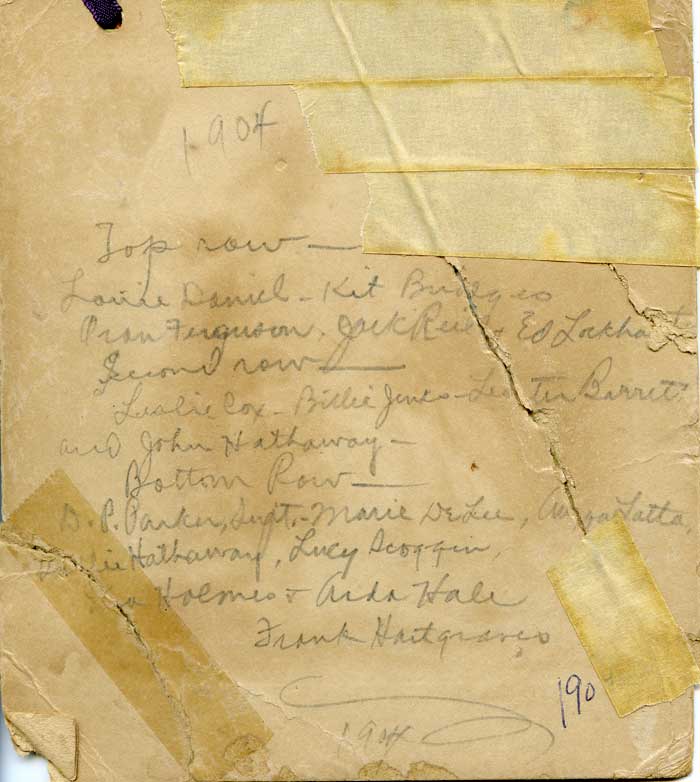 1904
Top row —
Daniel - Kit Bridges
Ferguson, Jack Reid, Ed Lockhart
Second row —
Leslie Cox - Billie Jones - Lester Barrett
and John Hathaway -
Bottom Row —
D. P. Parker, Supt. - Marie DeLee, Latta,
Hathaway, Lucy Scoggin,
Holmes & Aida Hale
Frank Hartgraves
190
1904